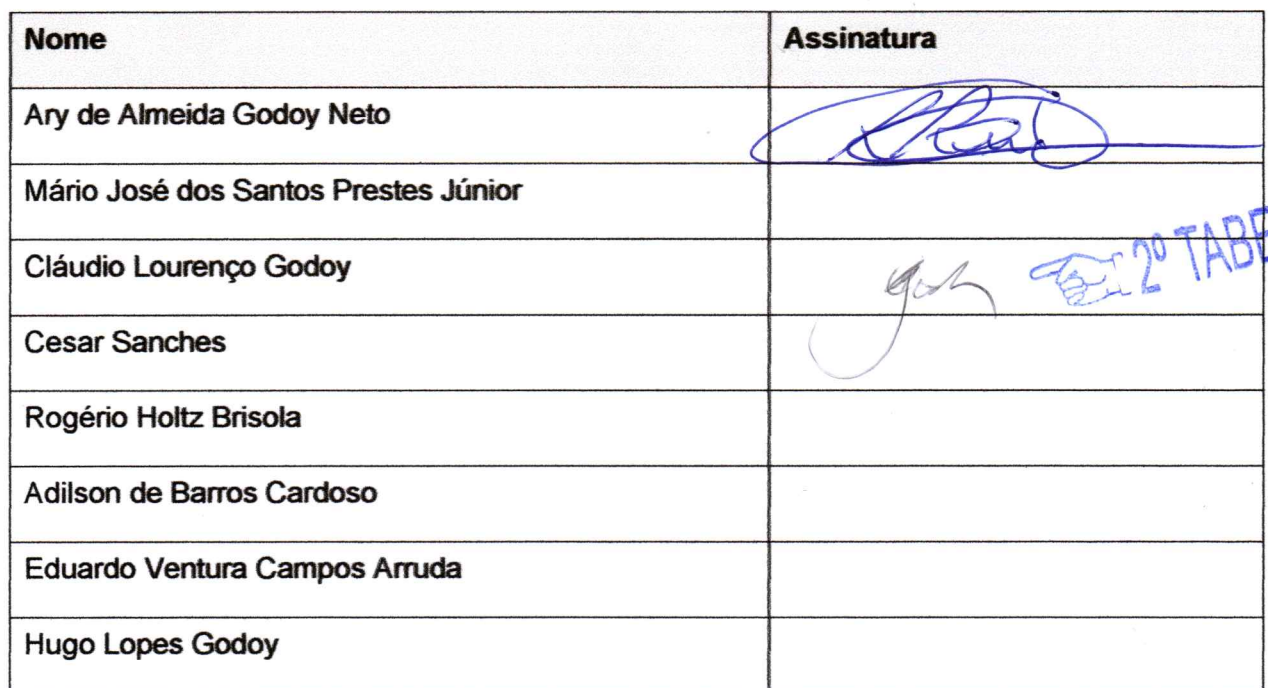 Nome Assinatura
Ary de Almeida Godoy Neto
Mário José dos Santos Prestes Júnior
Cláudio Lourenço Godoy 2º TABE
Cesar Sanches
Rogério Holtz Brisola
Adilson de Barros Cardoso
Eduardo Ventura Campos Arruda
Hugo Lopes Godoy